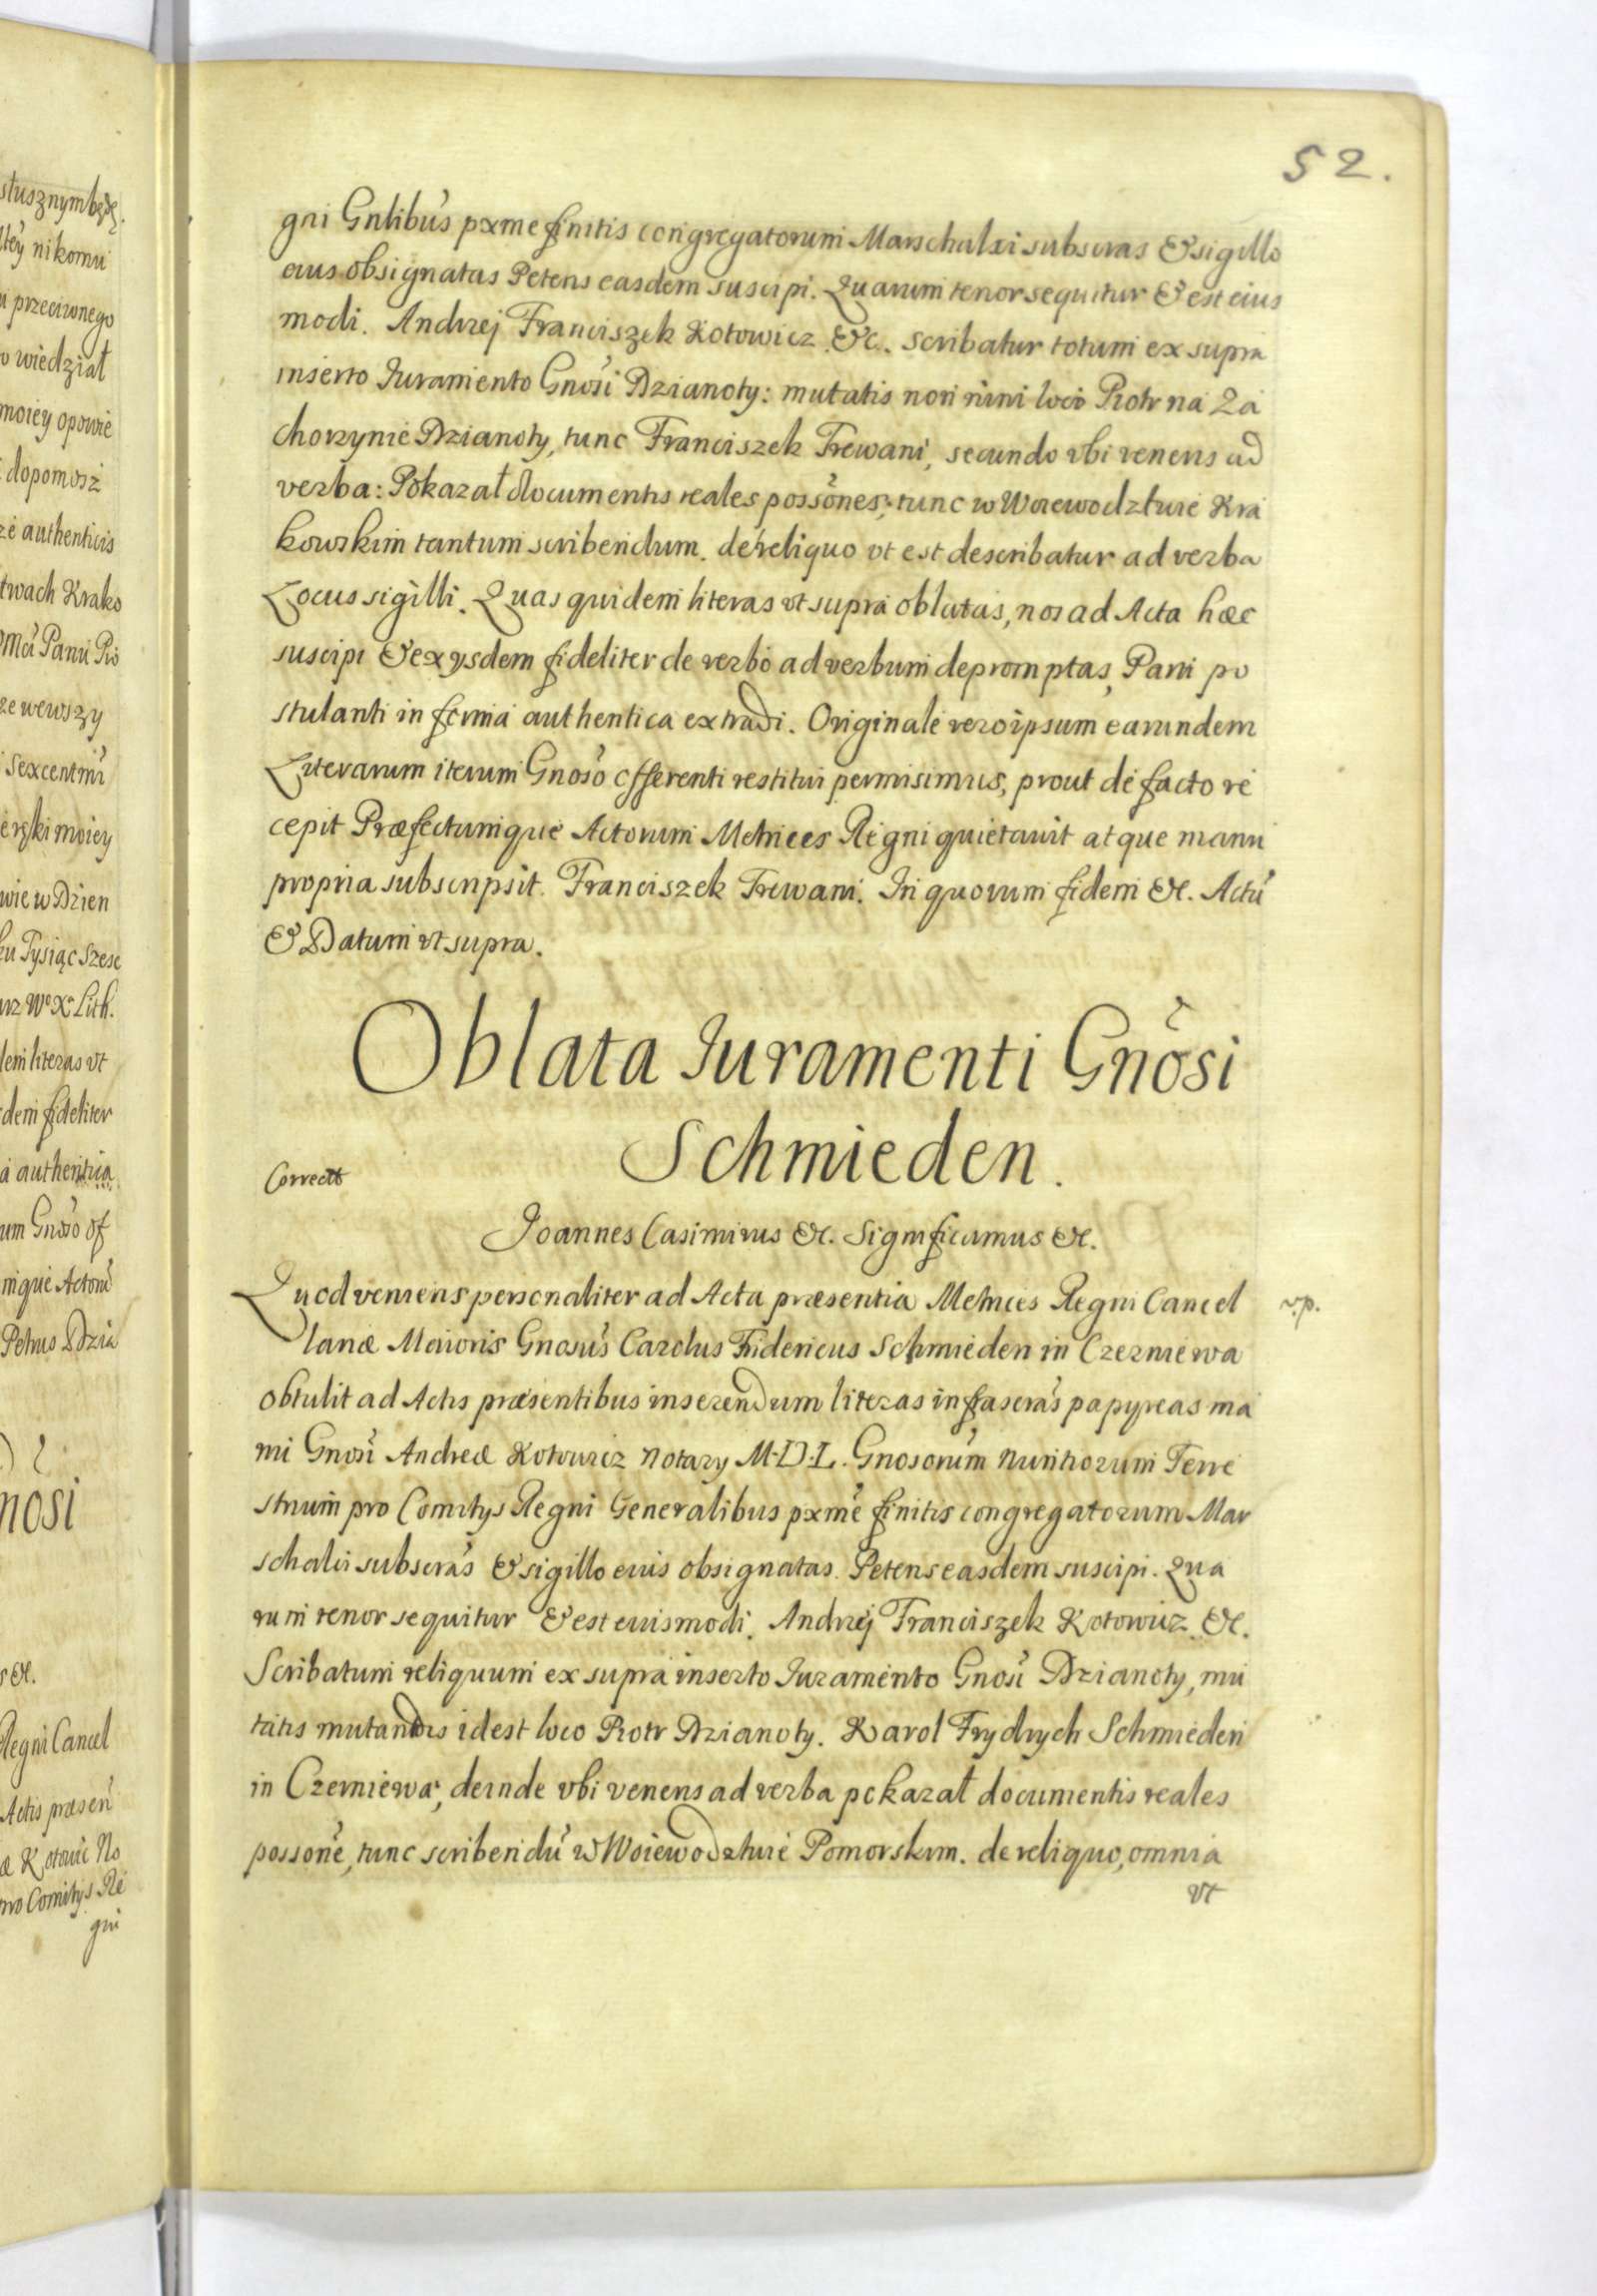 52.
gni Gnlibus pxme finitis congregatorum Marschalci subscras & sigillo
eius obsignatas Petens easdem suscipi. Quarum tenor sequitur & est eius
modi. Andrzej Franciszek Kotowicz &c. scribatur totum ex supra
inserto Iuramento Gnosi Dzianoty: mutatis nominini loco Piotr na Za
chorzynie Dzianoty, tunc Franciszek Trewani, secundo vbi veneris ad
verba: Pokazał documentis reales possones; tunc w Woiewodztwie Kra
kowskim tantum scribendum. de reliquo vt est describatur ad verba
Locus sigilli. Quas quidem literas vt supra oblatas, nos ad Acta hæc
suscipi & ex ysdem fideliter de verbo ad verbum depromptas, Parti po
stulanti in forma authentica extradi. Originale vero ipsum earundem
Literarum iterum Gnoso offerenti restitui permisimus, prout de facto re
cepit Præfectumque Actorum Metrices Regni quietavit atque manu
propria subscripsit. Franciszek Trewani. In quorum fidem &c. Actu
& Datum vt supra.
Oblata Iuramenti Gnosi
Schmieden.
Correct
Joannes Casimirus &c. Significamus &c.
Quod veniens personaliter ad Acta præsentia Metrices Regni Cancel v.p.
lariæ Maioris Gnosus Carolus Fridericus Schmieden in Czerniewa
obtulit ad Actis præsentibus inserendum literas infrascras papyreas ma
nu Gnosi Andreæ Kotowicz Notary M.D.L. Gnosorum Nuntiorum Terre
strium pro Comitys Regni Generalibus pxme finitis congregatorum Mar
schalci subscras & sigillo eius obsignatas. Petens easdem suscipi. Qua
rum tenor sequitur & est euismodi. Andrzej Franciszek Kotowicz &c.
Scribatum reliquum ex supra inserto Iuramento Gnosi Dzianoty, mu
tatis mutandis idest loco Piotr Dzianoty. Karol Frydrych Schmieden
in Czerniewa, deinde vbi veneris ad verba pokazał documentis reales
possone, tunc scribendu w Woiewodztwie Pomorskim. de reliquo, omnia
vt